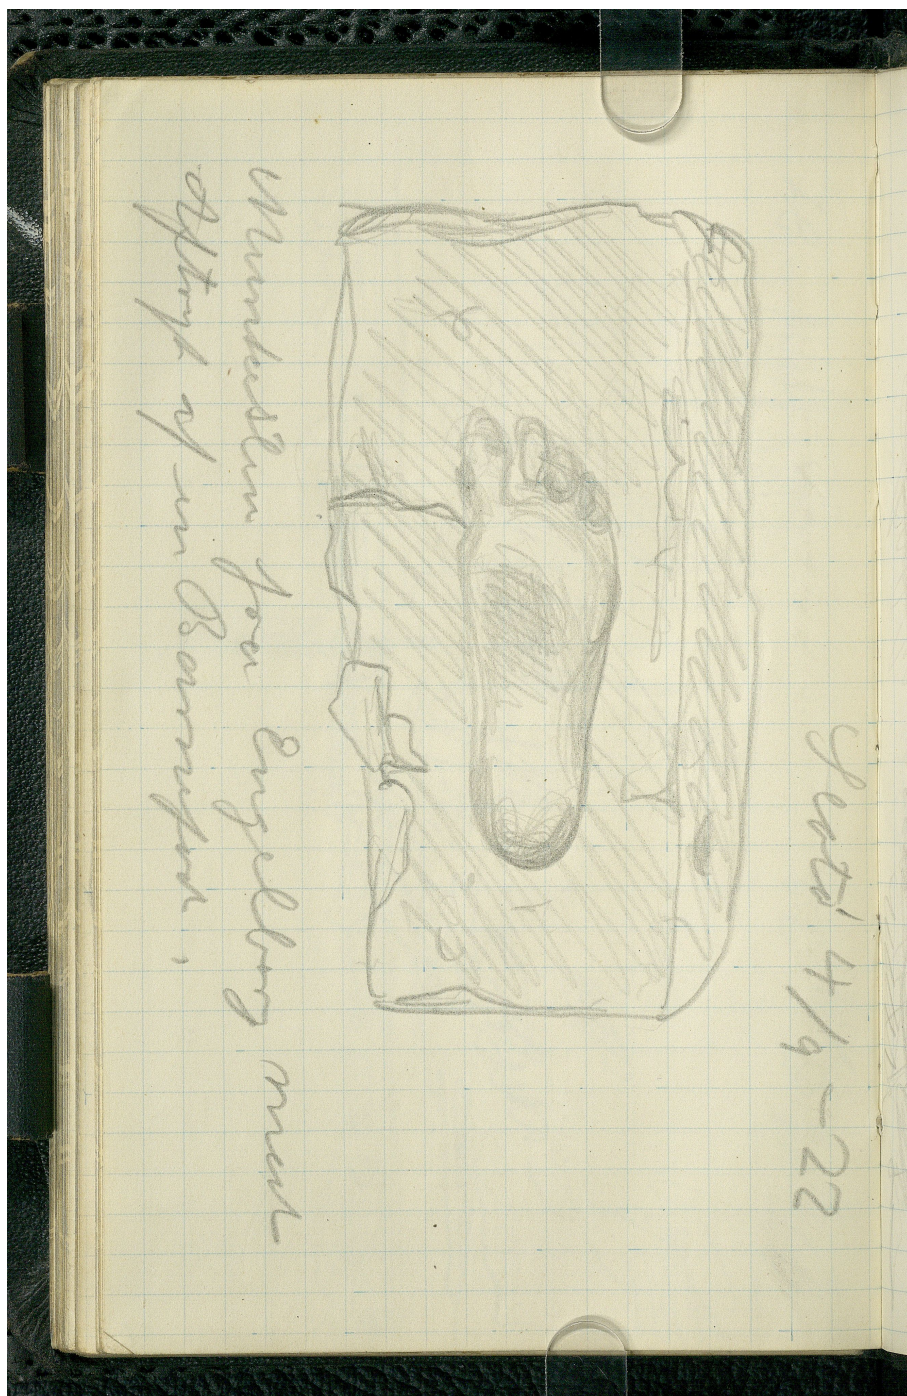 Slotö 4/9 - 22
Munkesten fra Engelborg med
Aftryk af en Barnefod.